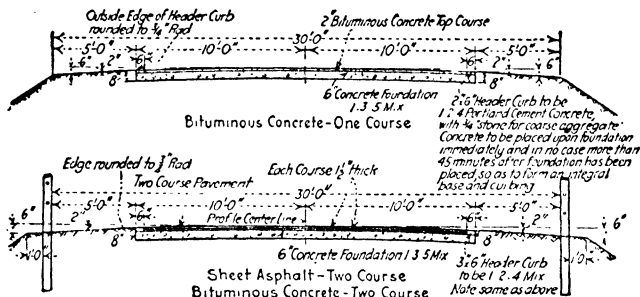 Outside Edge of Header Curb
rounded to 3/4" Rad
2" Bituminous Concrete Top Course
30'-0"
5'-0" 10'-0" 10'-0" 5'-0"
6" 6"
6" 2" 2" 6"
8" 8"
6" Concrete Foundation
1 3 5 Mix
Bituminous Concrete-One Course
2"x6" Header Curb to be
1 2 4 Portland Cement Concrete,
with 3/4" stone for coarse aggregate
Concrete to be placed upon foundation
immediately and in no case more than
45 minutes after foundation has been
placed, so as to form an integral
base and curbing
Edge rounded to 3/4" Rad
Two Course Pavement
Each Course 1½" thick
30'-0"
5'-0" 10'-0" 10'-0" 5'-0"
6" 6"
Profile Center Line
6" 2" 2" 6"
8" 8"
1'-0 1'-0
6" Concrete Foundation 1 3 5 Mix
3"x6" Header Curb
to be 1 2 4 Mix
Note same as above
Sheet Asphalt-Two Course
Bituminous Concrete-Two Course